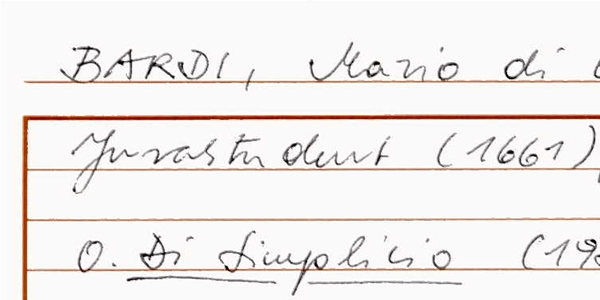 BARDI, Mario di
Jurastudent (1661),
O. Di Simplicio (19